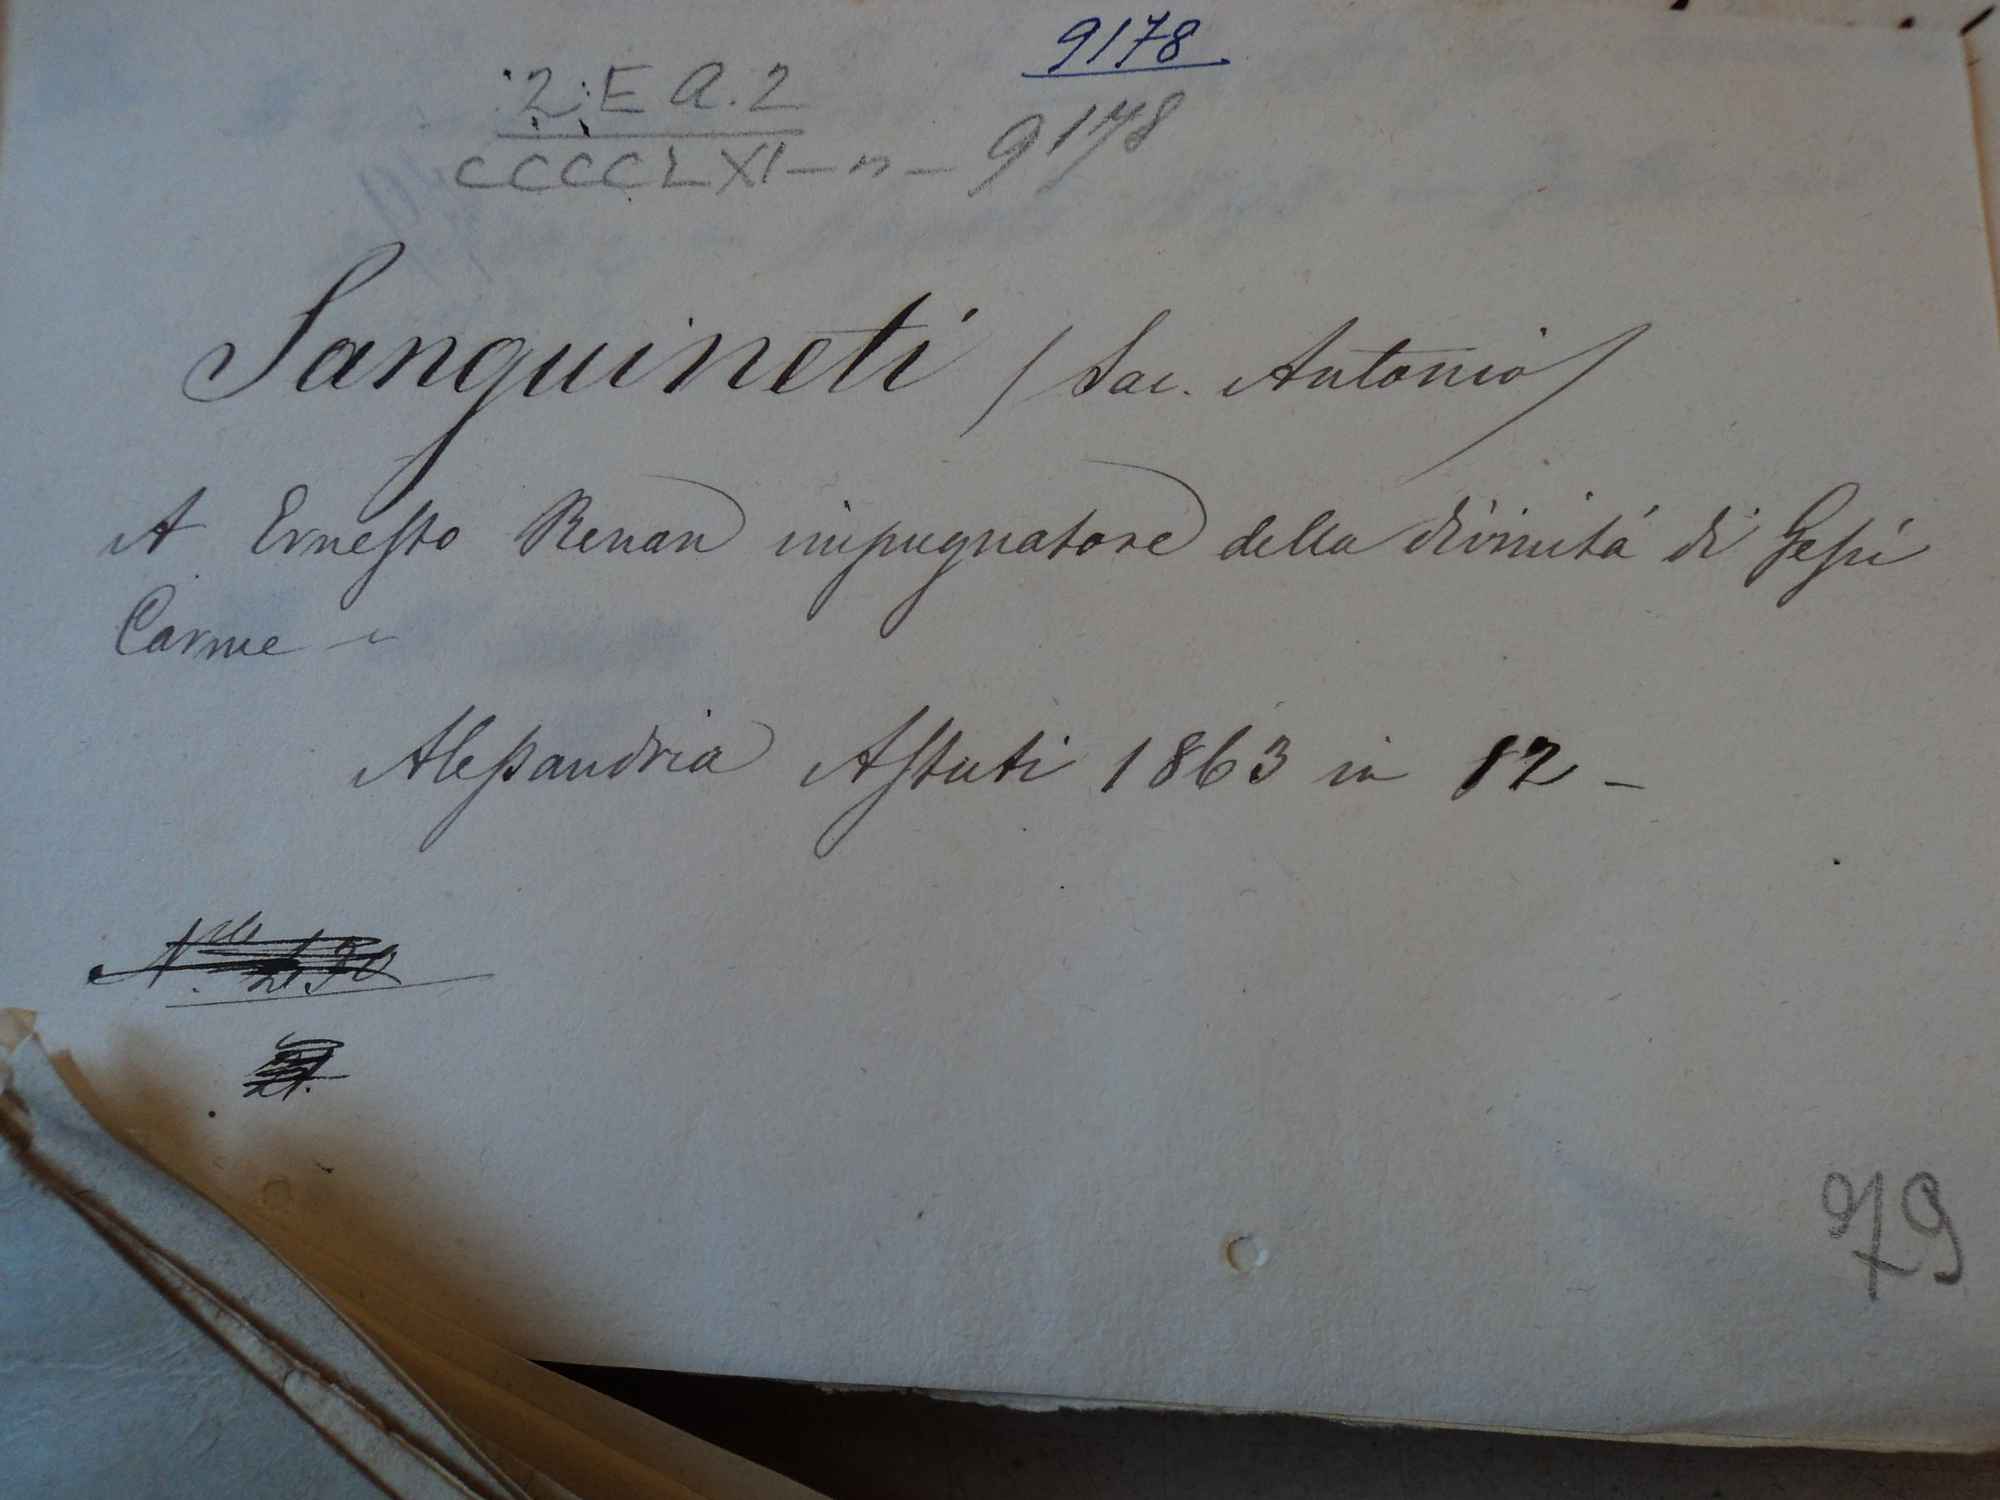 9178
2. E A. 2
CCCCLXI - n - 9178
Sanguineti (Sac. Antonio)
A Ernesto Renan impugnatore della divinitá di Gesú
Carme -
Alessandria Astuti 1863 in 12 -
979